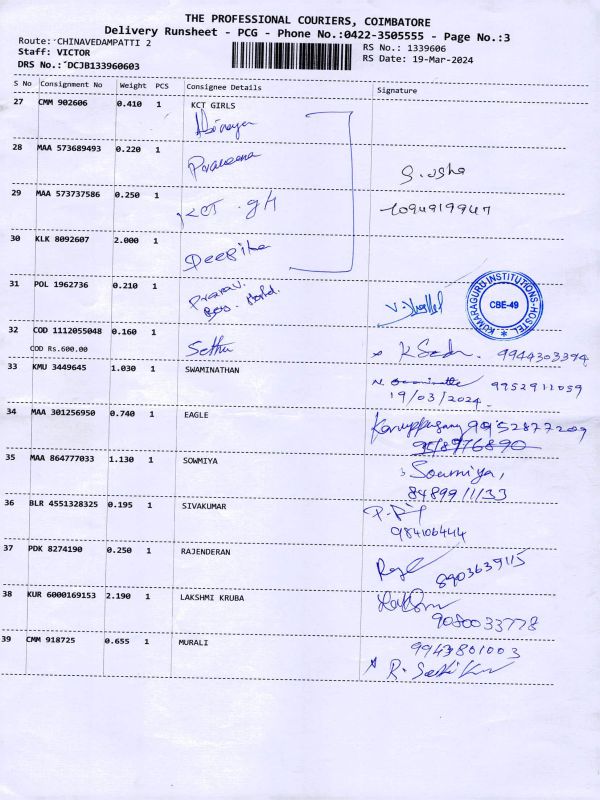 THE PROFESSIONAL COURIERS, COIMBATORE
Delivery Runsheet - PCG - Phone No.:0422-3505555 - Page No.:3
Route: CHINAVEDAMPATTI 2
RS No.: 1339606
Staff: VICTOR
RS Date: 19-Mar-2024
DRS No.: DCJB133960603
S No Consignment No Weight PCS Consignee Details Signature
27 CMM 902606 0.410 1 KCT GIRLS
28 MAA 573689493 0.220 1 Praveena
S. usha
29 MAA 573737586 0.250 1 KCT .gH
30 KLK 8092607 2.000 1 Deepika
31 POL 1962736 0.210 1
KUMARAGURU INSTITUTIONS-HOSTEL
CBE-49
32 COD 1112055048 0.160 1 Sethu
COD Rs.600.00
9944303394
33 KMU 3449645 1.030 1 SWAMINATHAN
9952911059
19/03/2024
34 MAA 301256950 0.740 1 EAGLE
9952877209
35 MAA 864777033 1.130 1 SOWMIYA
Soumiya,
8489911133
36 BLR 4551328325 0.195 1 SIVAKUMAR
984106444
37 PDK 8274190 0.250 1 RAJENDERAN
8903639115
38 KUR 6000169153 2.190 1 LAKSHMI KRUBA
9080033778
39 CMM 918725 0.655 1 MURALI
9943801003